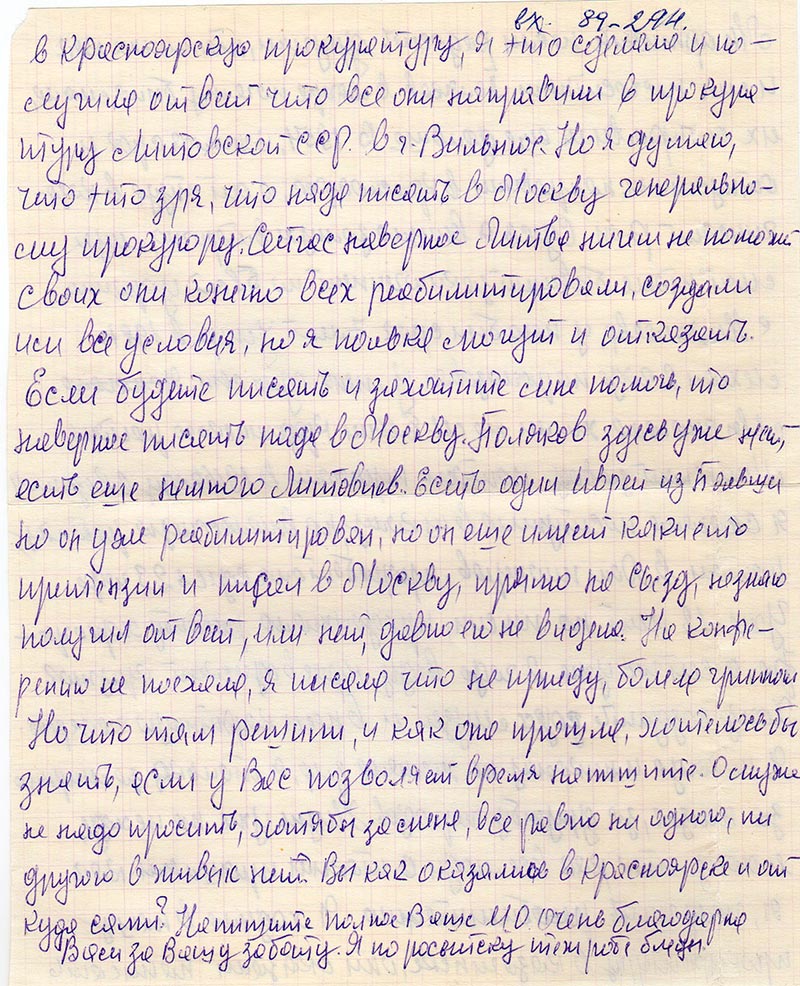 вх. 89-294.
в Красноярскую прокуратуру, я это сделала и по-
лучила ответ что все они направили в прокура-
туру Литовской ССР. в г. Вильнюс. Но я думаю,
что это зря, что надо писать в Москву генерально-
му прокурору. Сейчас наверное Литва ничем не поможет
своих они конечно всех реабилитировали, создали
им все условия, но я полька могут и отказать.
Если будете писать и захотите мне помочь, то
наверное писать надо в Москву. Поляков здесь уже нет,
есть еще немного Литовцев. Есть один Еврей из Польши
но он уже реабилитирован, но он еще имеет какието
притензии и писал в Москву, прямо на Съезд, незнаю
получил ответ, или нет, давно его не видела. На конфе-
ренцию не поехала, я писала что не приеду, болела гриппом
Но что там решили, и как она прошла, хотелось бы
знать, если у Вас позволяет время напишите. О муже
не надо просить, хотябы за меня, все равно ни одного, ни
другого в живых нет. Вы как оказались в Красноярске и от
куда сами? Напишите полное Ваше ИО. очень благодарна
Вам за Вашу заботу. Я по росыйску теж робе блэды